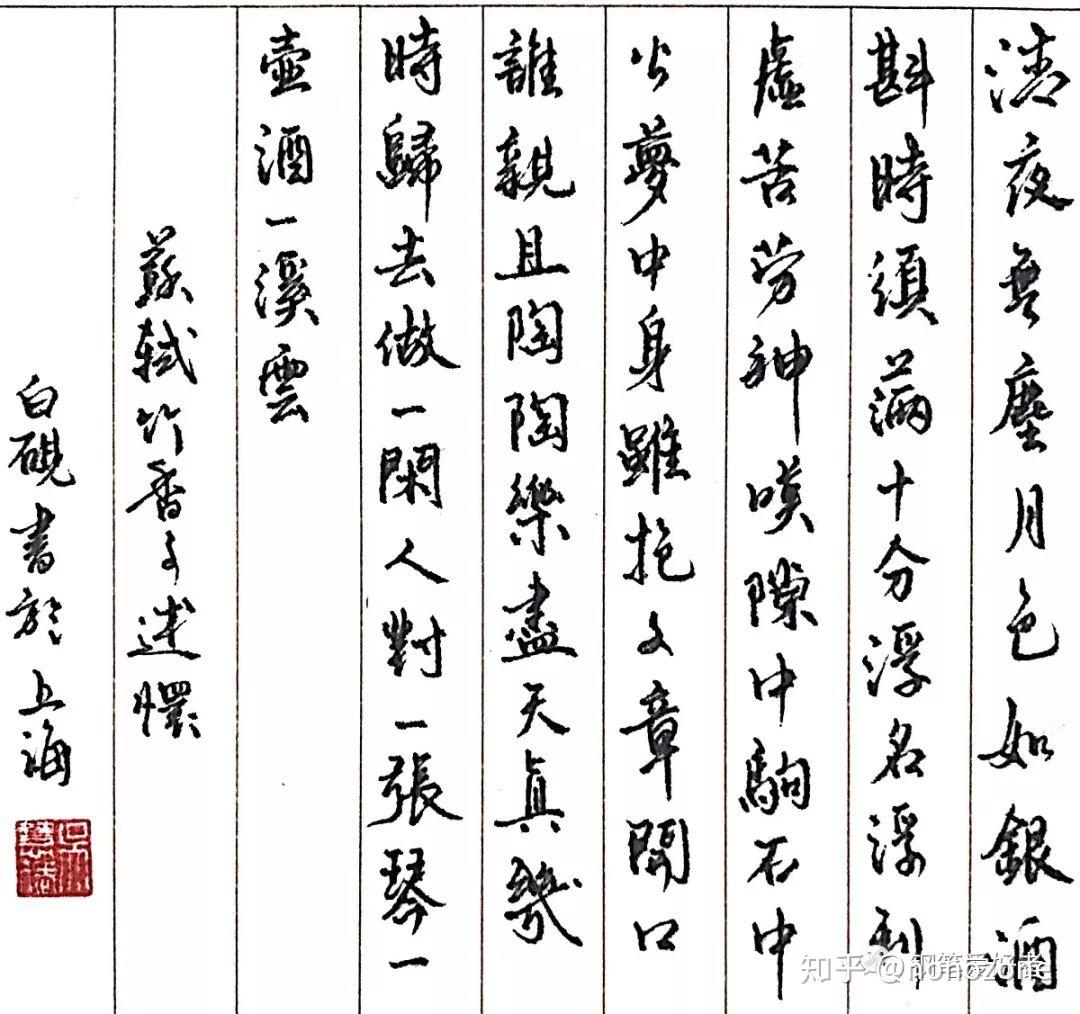 清夜無塵月色如銀酒
斟時須滿十分浮名浮利
虛苦勞神嘆隙中駒石中
火夢中身雖抱文章開口
誰親且陶陶樂盡天真幾
時歸去做一閑人對一張琴一
壺酒一溪雲
蘇軾行香子述懷
白硯書於上海
知乎